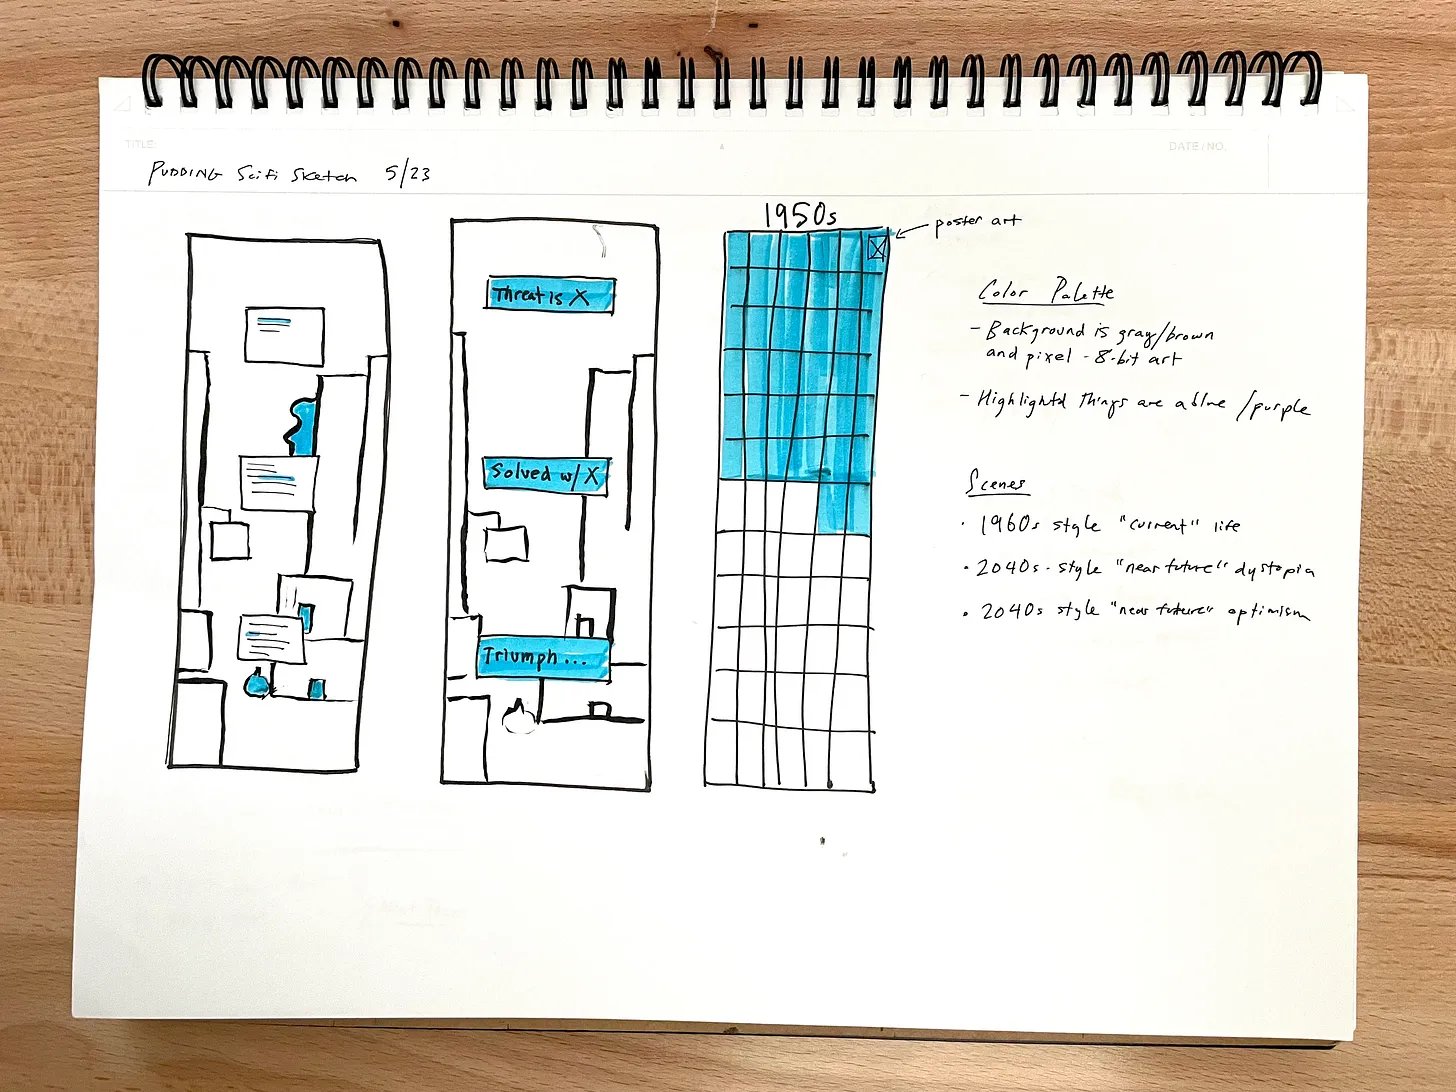 TITLE:
DATE / NO.
PUDDING Scifi Sketch 5/23
Threat is X
Solved w/ X
Triumph ...
1950s
poster art
Color Palette
- Background is gray/brown
and pixel - 8-bit art
- Highlightd things are a blue /purple
Scenes
· 1960s style "current" life
· 2040s - style "near future" dystopia
· 2040s style "near future" optimism